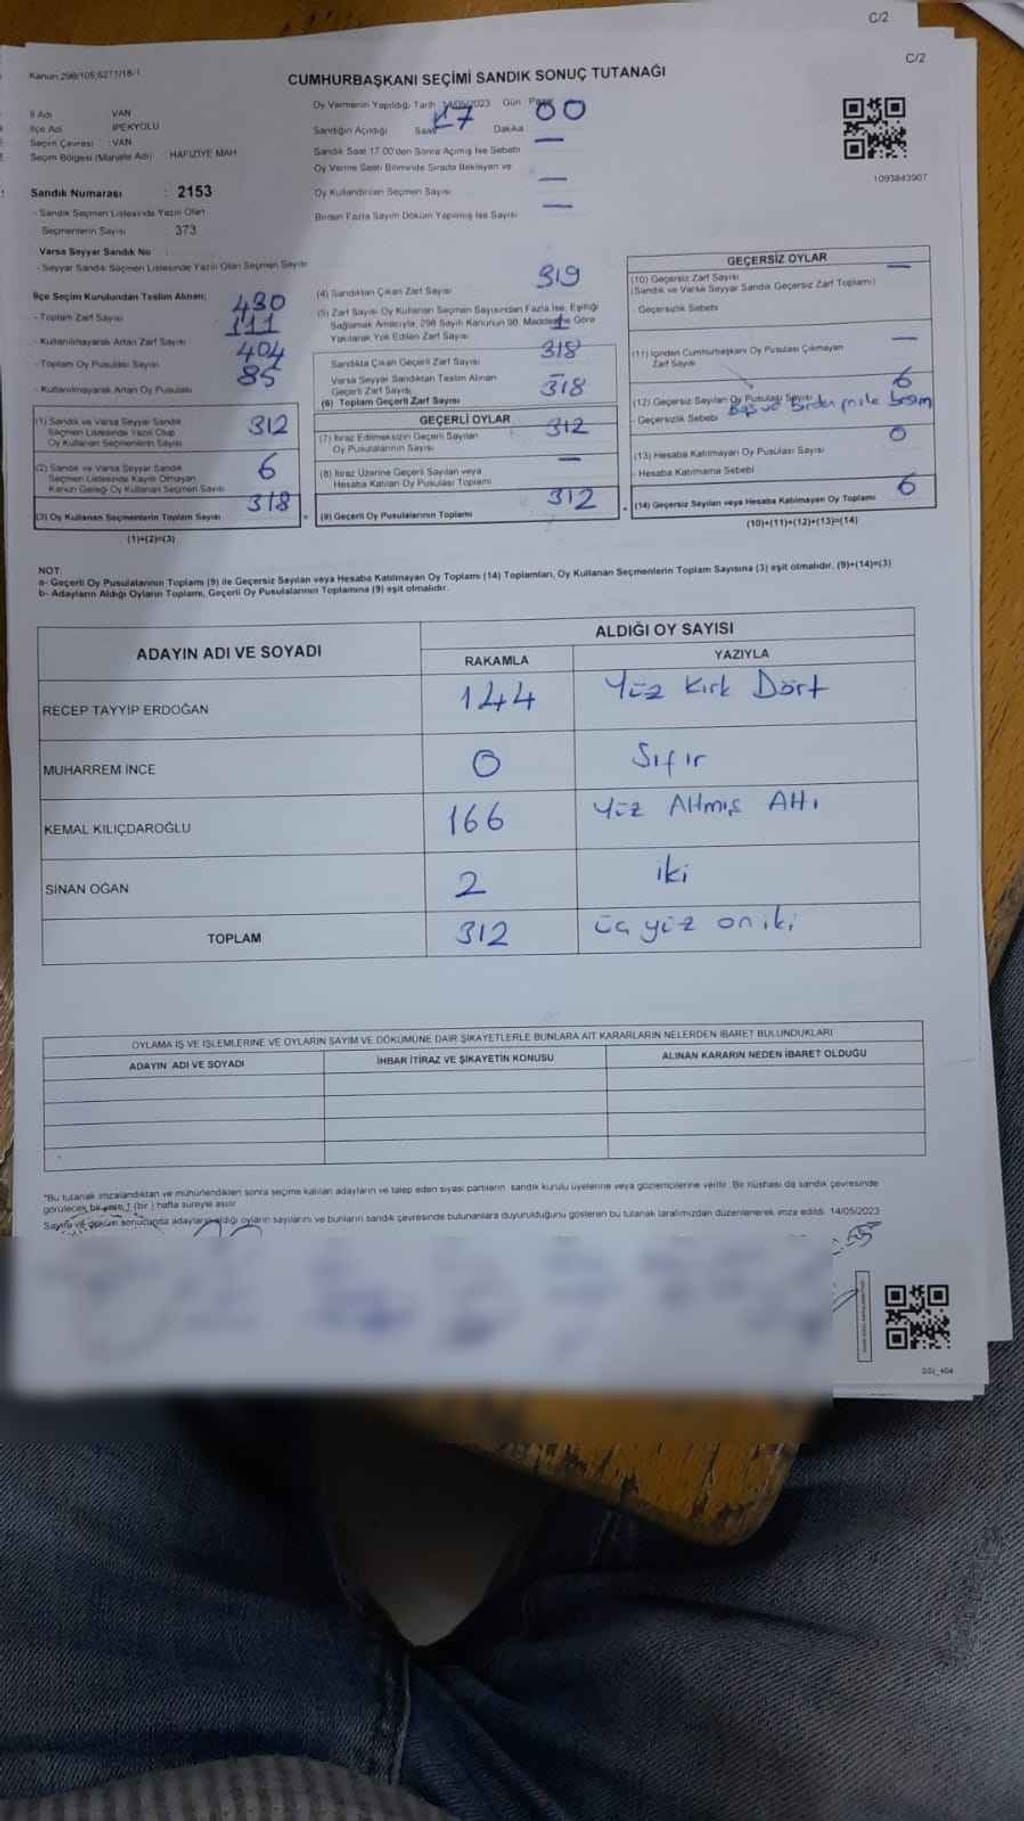 C/2
C/2
Kanun:298/105,6271/18-1
CUMHURBAŞKANI SEÇİMİ SANDIK SONUÇ TUTANAĞI
İl Adı VAN
İlçe Adı İPEKYOLU
Seçim Çevresi : VAN
Seçim Bölgesi (Mahalle Adı) : HAFIZIYE MAH
Sandık Numarası : 2153
- Sandık Seçmen Listesinde Yazılı Olan
Seçmenlerin Sayısı 373
Varsa Seyyar Sandık No
- Seyyar Sandık Seçmen Listesinde Yazılı Olan Seçmen Sayısı
Oy Vermenin Yapıldığı Tarih 14/05/2023 Gün Pazar
Sandığın Açıldığı Saat 17 Dakika 00
Sandık Saat 17.00'den Sonra Açılmış İse Sebebi —
Oy Verme Saati Bitiminde Sırada Bekleyen ve
Oy Kullandırılan Seçmen Sayısı —
Birden Fazla Sayım Döküm Yapılmış İse Sayısı —
1093843907
İlçe Seçim Kurulundan Teslim Alınan;
- Toplam Zarf Sayısı 430
- Kullanılmayarak Artan Zarf Sayısı 111
- Toplam Oy Pusulası Sayısı 404
- Kullanılmayarak Artan Oy Pusulası 85
(1) Sandık ve Varsa Seyyar Sandık
Seçmen Listesinde Yazılı Olup
Oy Kullanan Seçmenlerin Sayısı 312
(2) Sandık ve Varsa Seyyar Sandık
Seçmen Listesinde Kayıtlı Olmayan
Kanun Gereği Oy Kullanan Seçmen Sayısı 6
(3) Oy Kullanan Seçmenlerin Toplam Sayısı 318
(1)+(2)=(3)
(4) Sandıktan Çıkan Zarf Sayısı 319
(5) Zarf Sayısı Oy Kullanan Seçmen Sayısından Fazla İse, Eşitliği
Sağlamak Amacıyla, 298 Sayılı Kanunun 98. Maddesine Göre
Yakılarak Yok Edilen Zarf Sayısı 1
Sandıkta Çıkan Geçerli Zarf Sayısı 318
Varsa Seyyar Sandıktan Teslim Alınan
Geçerli Zarf Sayısı —
(6) Toplam Geçerli Zarf Sayısı 318
GEÇERLİ OYLAR
(7) İtiraz Edilmeksizin Geçerli Sayılan
Oy Pusulalarının Sayısı 312
(8) İtiraz Üzerine Geçerli Sayılan veya
Hesaba Katılan Oy Pusulası Toplamı —
(9) Geçerli Oy Pusulalarının Toplamı 312
GEÇERSİZ OYLAR
(10) Geçersiz Zarf Sayısı —
(Sandık ve Varsa Seyyar Sandık Geçersiz Zarf Toplamı)
- Geçersizlik Sebebi
(11) İçinden Cumhurbaşkanı Oy Pusulası Çıkmayan
Zarf Sayısı —
(12) Geçersiz Sayılan Oy Pusulası Sayısı 6
- Geçersizlik Sebebi Boş ve birden
(13) Hesaba Katılmayan Oy Pusulası Sayısı 0
- Hesaba Katılmama Sebebi
(14) Geçersiz Sayılan veya Hesaba Katılmayan Oy Toplamı 6
(10)+(11)+(12)+(13)=(14)
NOT:
a- Geçerli Oy Pusulalarının Toplamı (9) ile Geçersiz Sayılan veya Hesaba Katılmayan Oy Toplamı (14) Toplamları, Oy Kullanan Seçmenlerin Toplam Sayısına (3) eşit olmalıdır. (9)+(14)=(3)
b- Adayların Aldığı Oyların Toplamı, Geçerli Oy Pusulalarının Toplamına (9) eşit olmalıdır.
ADAYIN ADI VE SOYADI ALDIĞI OY SAYISI
RAKAMLA YAZIYLA
RECEP TAYYİP ERDOĞAN 144 Yüz Kırk Dört
MUHARREM İNCE 0 Sıfır
KEMAL KILIÇDAROĞLU 166 Yüz Altmış Altı
SİNAN OĞAN 2 iki
TOPLAM 312 üç yüz on iki
OYLAMA İŞ VE İŞLEMLERİNE VE OYLARIN SAYIM VE DÖKÜMÜNE DAİR ŞİKAYETLERLE BUNLARA AİT KARARLARIN NELERDEN İBARET BULUNDUKLARI
ADAYIN ADI VE SOYADI İHBAR İTİRAZ VE ŞİKAYETİN KONUSU ALINAN KARARIN NEDEN İBARET OLDUĞU
"Bu tutanak imzalandıktan ve mühürlendikten sonra seçime katılan adayların ve talep eden siyasi partilerin sandık kurulu üyelerine veya gözlemcilerine verilir. Bir nüshası da sandık çevresinde
görülecek bir yere 1 (bir) hafta süreyle asılır.
Sayım ve döküm sonucunda adayların aldığı oyların sayılarını ve bunların sandık çevresinde bulunanlara duyurulduğunu gösteren bu tutanak tarafımızdan düzenlenerek imza edildi. 14/05/2023